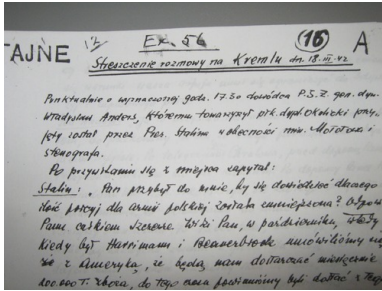 TAJNE 12 Ex. 56 16 A
Streszczenie rozmowy na Kremlu dn. 18.III.42
Punktualnie o wyznaczonej godz. 17.30 dowódca P.S.Z. gen. dyw.
Władysław Anders, któremu towarzyszył płk. dypl. Okulicki przy-
jęty został przez Prez. Stalina w obecności min. Mołotowa i
stenografa.
Po przywitaniu się z miejsca zapytał:
Stalin: Pan przybył do mnie, by się dowiedzieć dlaczego
ilość porcyj dla armii polskiej została zmniejszona? Odpowiem
Panu całkiem szczerze. Widzi Pan, w październiku, wtedy
kiedy był Harriman i Beaverbrook umówiliśmy
się z Ameryką, że będą nam dostarczać miesięcznie
200.000 T. zboża, do tego